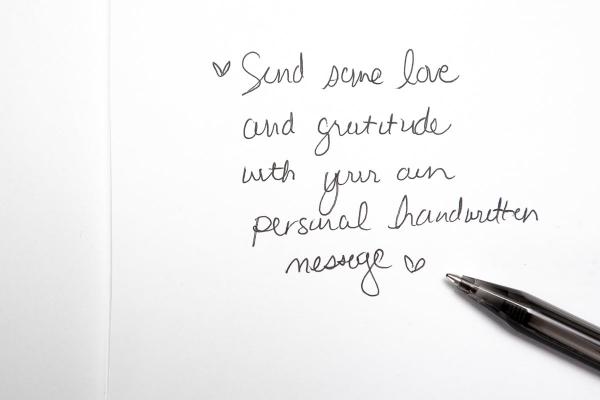 ♥ Send some love
and gratitude
with your own
personal handwritten
message ♥